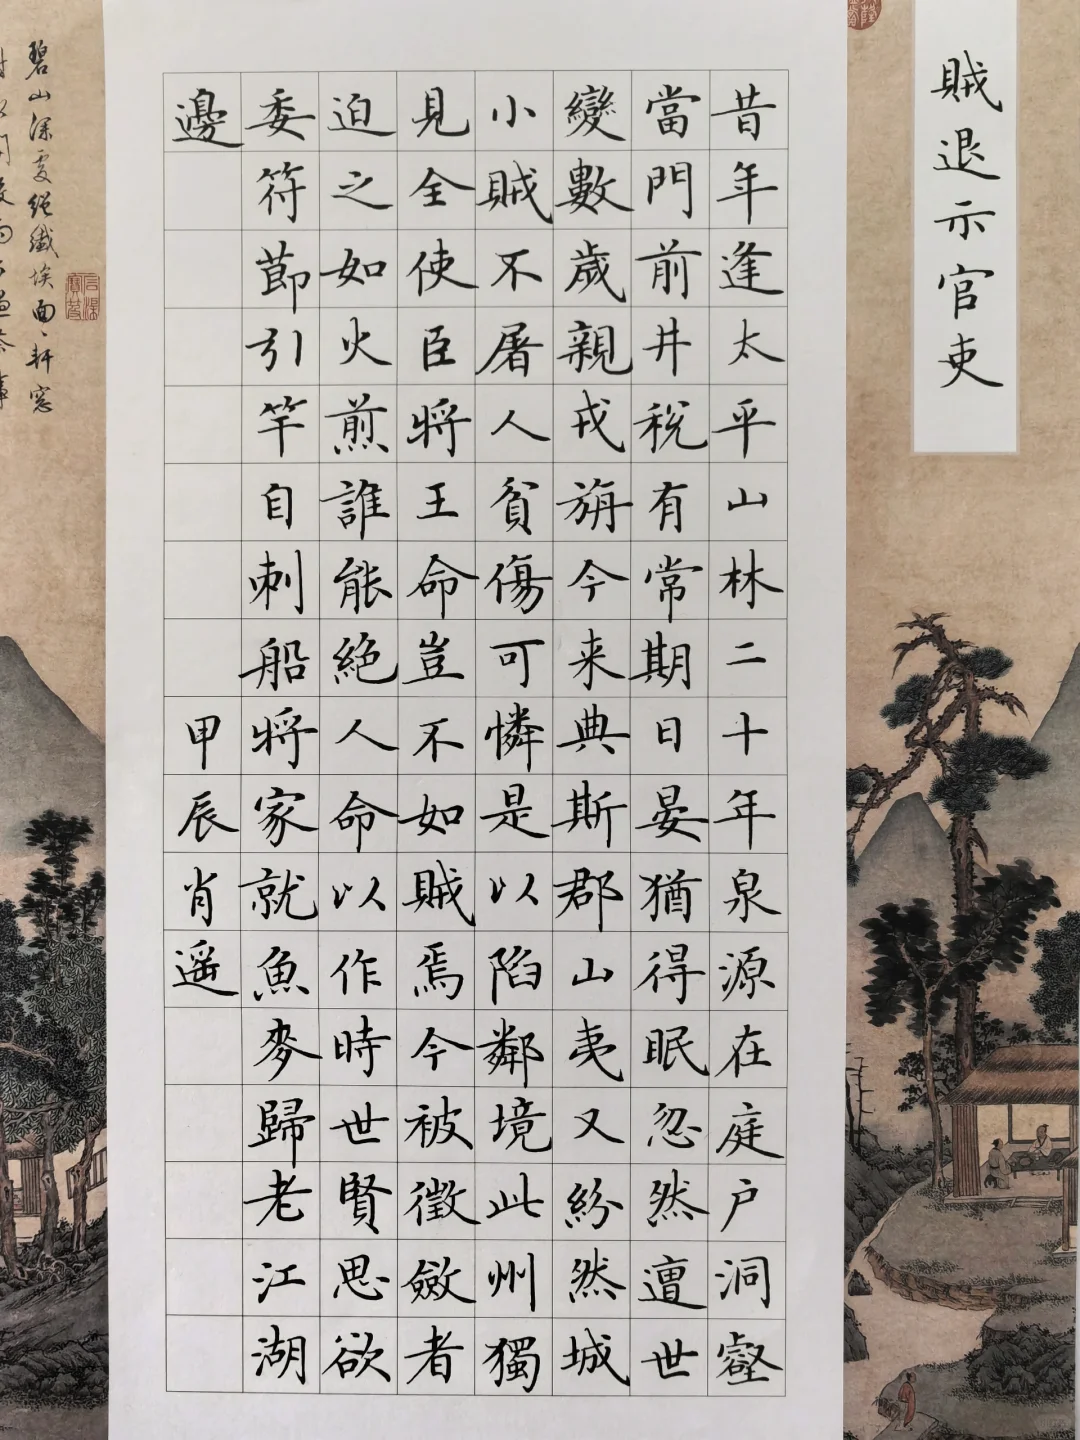 賊退示官吏
昔年逢太平山林二十年泉源在庭户洞壑
當門前井税有常期日晏猶得眠忽然遭世
變數歲親戎旃今来典斯郡山夷又紛然城
小賊不屠人貧傷可憐是以陷鄰境此州獨
見全使臣將王命豈不如賊焉今被徵斂者
迫之如火煎誰能絶人命以作時世賢思欲
委符節引竿自刺船將家就魚麥歸老江湖
邊
甲辰肖遥
碧山深處絶纖埃面面軒窓